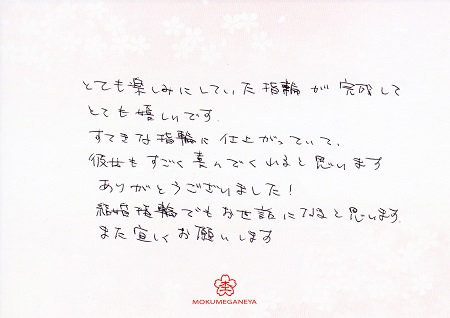 とても楽しみにしていた指輪が完成して
とても嬉しいです.
すてきな指輪に仕上がっていて、
彼女もすごく喜んでくれると思います
ありがとうございました！
結婚指輪でもお世話になると思います.
また宜しくお願いします
MOKUMEGANEYA